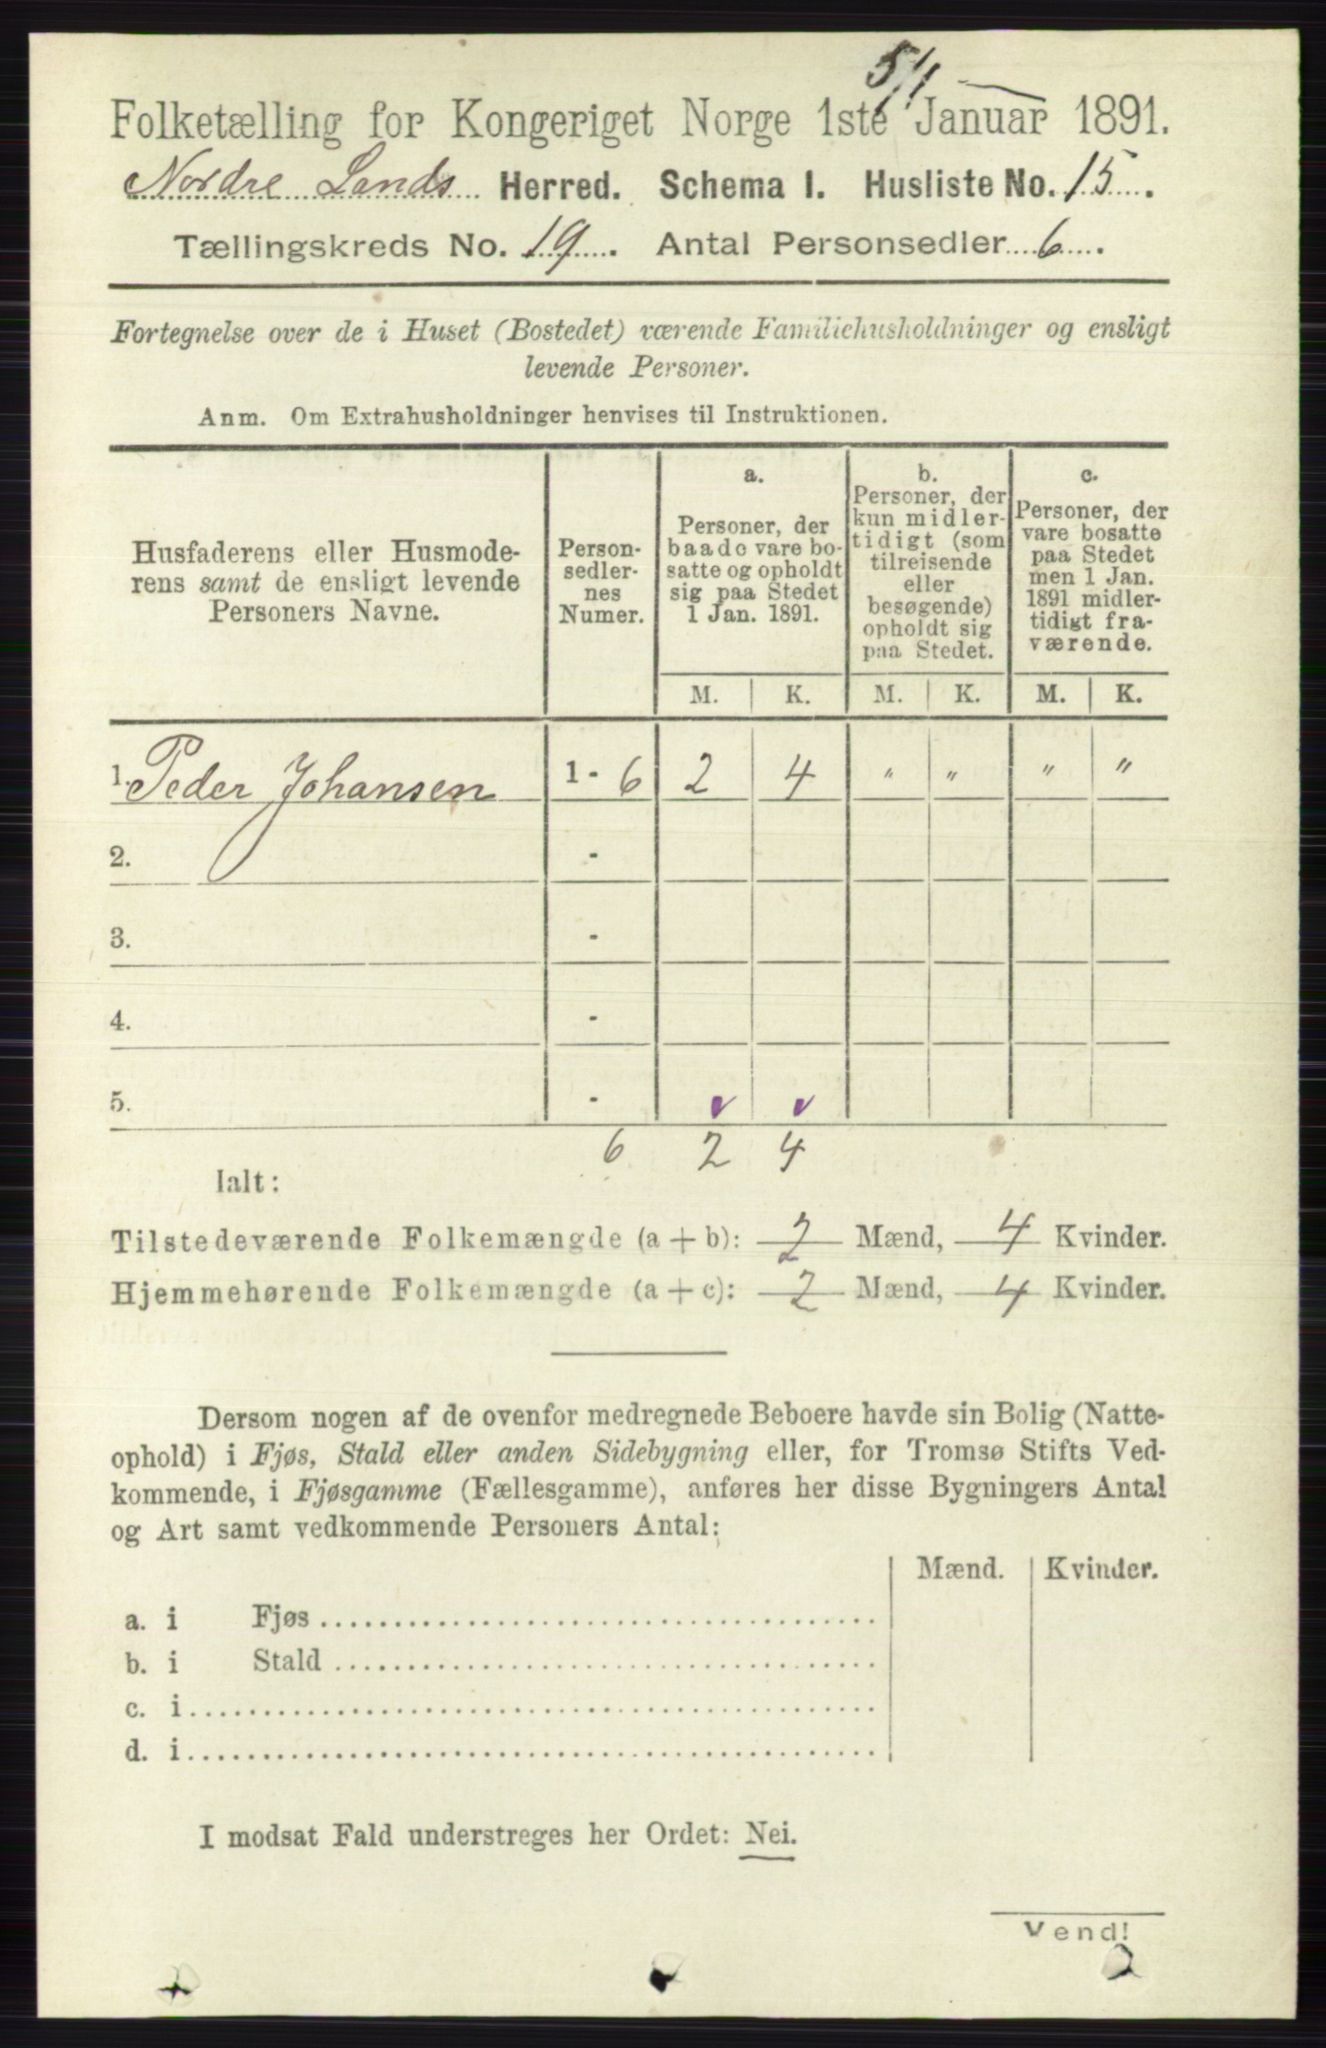 5/1
Folketælling for Kongeriget Norge 1ste Januar 1891.
Nordre Lands Herred. Schema I. Husliste No. 15.
Tællingskreds No. 19. Antal Personsedler 6.
Fortegnelse over de i Huset (Bostedet) værende Familiehusholdninger og ensligt
levende Personer.
Anm. Om Extrahusholdninger henvises til Instruktionen.
Husfaderens eller Husmode-
rens samt de ensligt levende
Personers Navne.
Person-
sedler-
nes
Numer.
a.
Personer, der
baade vare bo-
satte og opholdt
sig paa Stedet
1 Jan. 1891.
b.
Personer, der
kun midler-
tidigt (som
tilreisende
eller
besøgende)
opholdt sig
paa Stedet.
c.
Personer, der
vare bosatte
paa Stedet
men 1 Jan.
1891 midler-
tidigt fra-
værende.
M. K. M. K. M. K.
1. Peder Johansen 1 - 6 2 4 " " " "
2. -
3. -
4. -
5. -
6 2 4
Ialt:
Tilstedeværende Folkemængde (a + b): 2 Mænd, 4 Kvinder.
Hjemmehørende Folkemængde (a + c): 2 Mænd, 4 Kvinder.
Dersom nogen af de ovenfor medregnede Beboere havde sin Bolig (Natte-
ophold) i Fjøs, Stald eller anden Sidebygning eller, for Tromsø Stifts Ved-
kommende, i Fjøsgamme (Fællesgamme), anføres her disse Bygningers Antal
og Art samt vedkommende Personers Antal:
Mænd. Kvinder.
a. i Fjøs
b. i Stald
c. i
d. i
I modsat Fald understreges her Ordet: Nei.
Vend!